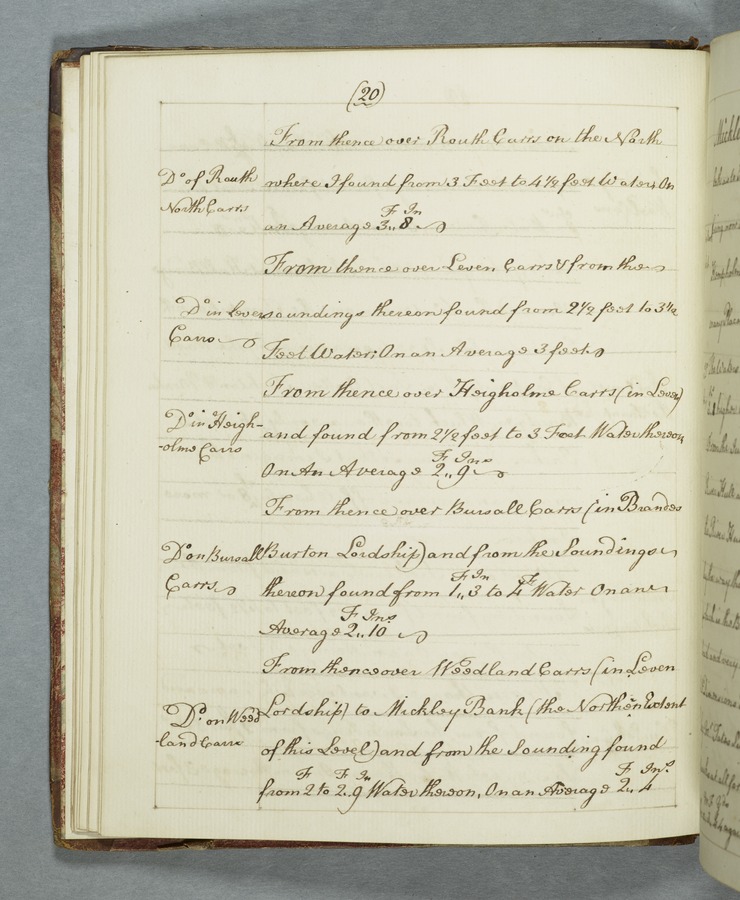 (20)
From thence over Routh Carrs on the North
Do of Routh
where I found from 3 Feet to 4 1/2 feet Water, On
North Carrs
F In
an Average 3,, 8
From thence over Leven Carrs & from the
Do in Leven
soundings thereon found from 2 1/2 feet to 3 1/2
Carrs
Feet Water, On an Average 3 feet
From thence over Heigholme Carrs (in Leven)
Do in Heigh-
and found from 2 1/2 feet to 3 Feet Water thereon
-olme Carrs
F Ins
On An Average 2,, 9
From thence over Bursall Carrs (in Brandes
Do on Bursall
Burton Lordship) and from the Soundings
Carrs
F In F
thereon found from 1,, 3 to 4 Water On an
F Ins
Average 2,, 10
From thence over Weedland Carrs (in Leven
Do on Weed
Lordship) to Mickley Bank (the Northen Extent
land Carrs
of this Level) and from the Sounding found
F F In F Ins
from 2 to 2,, 9 Water thereon, On an Average 2,, 4
Mickle